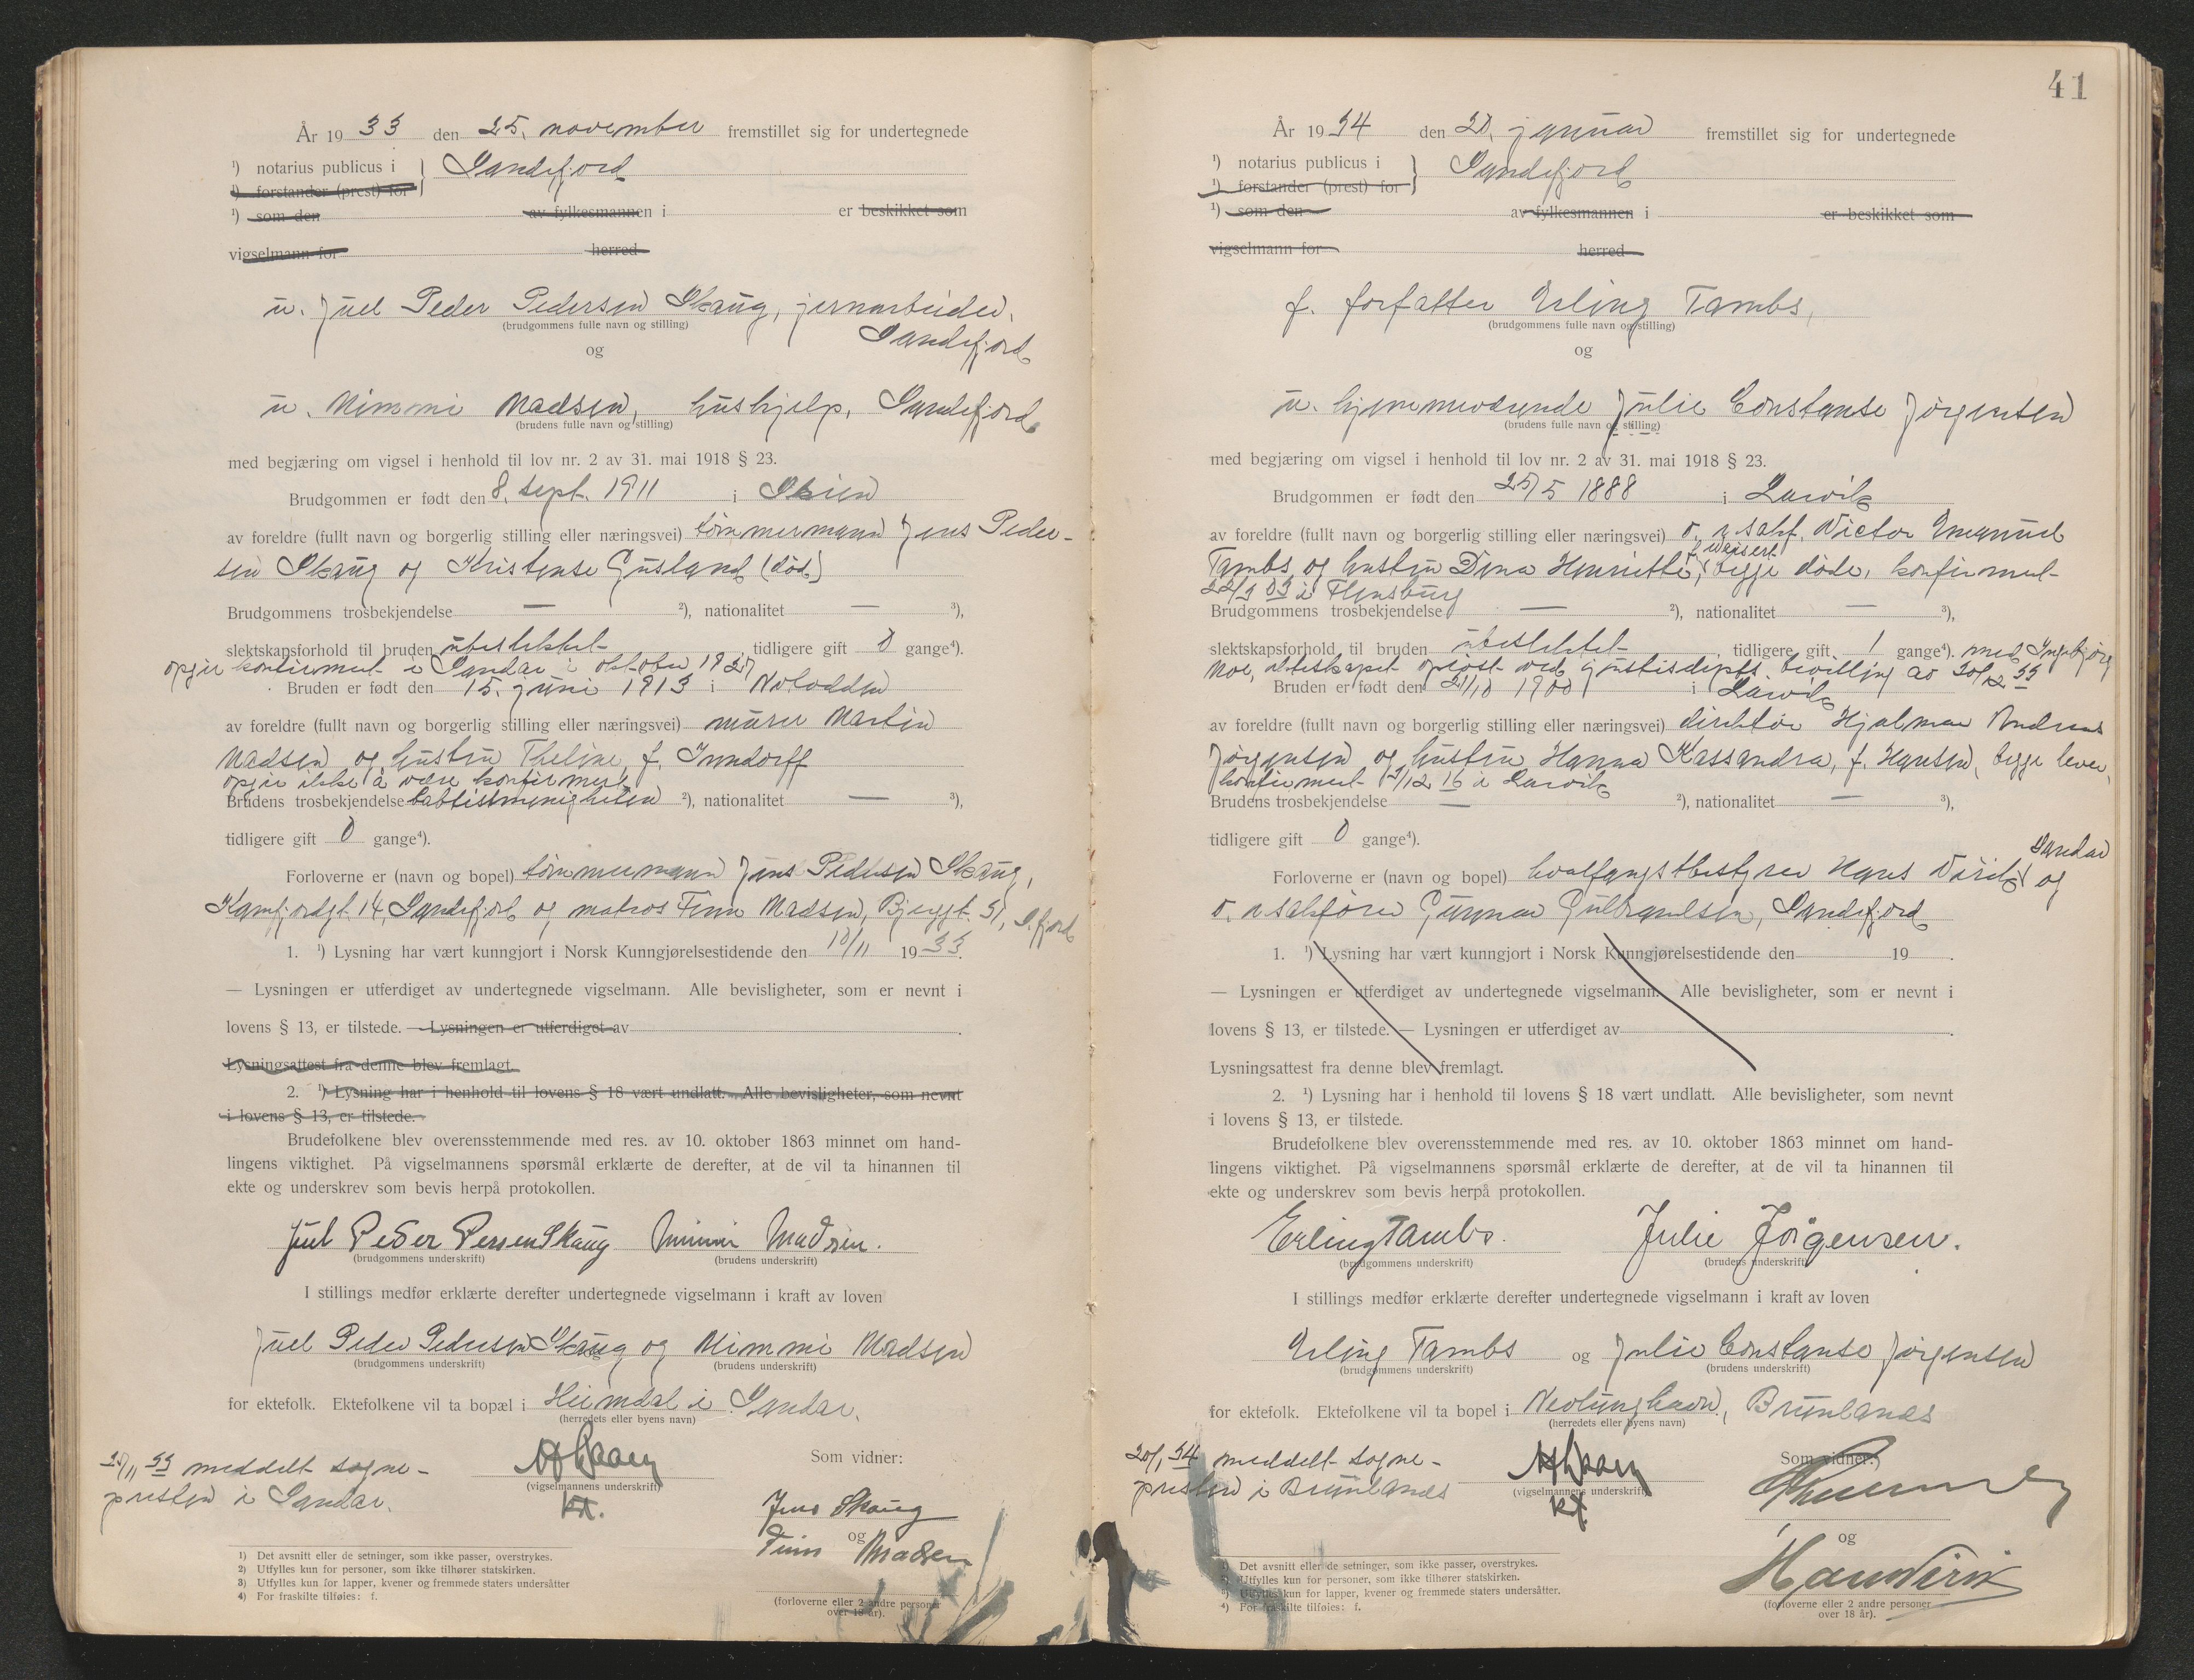 År 1933 den 25. november fremstillet sig for undertegnede
¹) notarius publicus i } Sandefjord
¹) forstander (prest) for
¹) som den av fylkesmannen i er beskikket som
vigselmann for herred
u. Juel Peder Pedersen Skaug, jernarbeider,
(brudgommens fulle navn og stilling)
Sandefjord
og
u. Mimmi Madsen, hushjelp, Sandefjord
(brudens fulle navn og stilling)
med begjæring om vigsel i henhold til lov nr. 2 av 31. mai 1918 § 23.
Brudgommen er født den 8. sept. 1911 i Skien
av foreldre (fullt navn og borgerlig stilling eller næringsvei) tømmermann Jens Peder-
sen Skaug og Kristense Gusland (død)
Brudgommens trosbekjendelse — ²), nationalitet — ³),
slektskapsforhold til bruden ubeslektet tidligere gift 0 gange⁴).
opgir konfirmert i Sandar i oktober 1927
Bruden er født den 15. juni 1913 i Notodden
av foreldre (fullt navn og borgerlig stilling eller næringsvei) murer Martin
Madsen og hustru Theline, f. Inndorff
opgir ikke å være konfirmert
Brudens trosbekjendelse babtistmenigheten ²), nationalitet — ³),
tidligere gift 0 gange⁴).
Forloverne er (navn og bopel) tømmermann Jens Pedersen Skaug,
Kamfjordgt. 14, Sandefjord og matros Finn Madsen, Bjerggt. 51, S.fjord
1. ¹) Lysning har vært kunngjort i Norsk Kunngjørelsestidende den 10/11 1933.
— Lysningen er utferdiget av undertegnede vigselmann. Alle bevisligheter, som er nevnt i
lovens § 13, er tilstede. — Lysningen er utferdiget av .
Lysningsattest fra denne blev fremlagt.
2. ¹) Lysning har i henhold til lovens § 18 vært undlatt. Alle bevisligheter, som nevnt
i lovens § 13, er tilstede.
Brudefolkene blev overensstemmende med res. av 10. oktober 1863 minnet om hand-
lingens viktighet. På vigselmannens spørsmål erklærte de derefter, at de vil ta hinannen til
ekte og underskrev som bevis herpå protokollen.
Juel Peder Persen Skaug Mimmi Madsen.
(brudgommens underskrift) (brudens underskrift)
I stillings medfør erklærte derefter undertegnede vigselmann i kraft av loven
Juel Peder Pedersen Skaug og Mimmi Madsen
(brudgommens underskrift) (brudens underskrift)
for ektefolk. Ektefolkene vil ta bopæl i Heimdal i Sandar.
(herredets eller byens navn)
25/11 33 meddelt sogne-
presten i Sandar.
(vigselmannens underskrift)
kst.
Som vidner:
Jens Skaug
og
Finn Madsen
(forloverne eller 2 andre personer
over 18 år).
1) Det avsnitt eller de setninger, som ikke passer, overstrykes.
2) Utfylles kun for personer, som ikke tilhører statskirken.
3) Utfylles kun for lapper, kvener og fremmede staters undersåtter
4) For fraskilte tilføies: f.
41
År 1934 den 20. januar fremstillet sig for undertegnede
¹) notarius publicus i } Sandefjord
¹) forstander (prest) for
¹) som den av fylkesmannen i er beskikket som
vigselmann for herred
f. forfatter Erling Tambs,
(brudgommens fulle navn og stilling)
og
u. hjemmeværende Julie Constanse Jørgensen
(brudens fulle navn og stilling)
med begjæring om vigsel i henhold til lov nr. 2 av 31. mai 1918 § 23.
Brudgommen er født den 25/5 1888 i Larvik
av foreldre (fullt navn og borgerlig stilling eller næringsvei) o. r. sakf. Victor Emanuel
Tambs og hustru Dina Henriette, f. Weisert begge døde, konfirmert
22/3 03 i Flensburg
Brudgommens trosbekjendelse — ²), nationalitet — ³),
slektskapsforhold til bruden ubeslektet tidligere gift 1 gange⁴). med Ingebjørg
Moe, ekteskapet opløst ved justisdepts. bevilling av 30/12 33
Bruden er født den 21/10 1900 i Larvik
av foreldre (fullt navn og borgerlig stilling eller næringsvei) direktør Hjalmar Andreas
Jørgensen og hustru Hanna Kassandra, f. Hansen, begge lever,
konfirmert /12 16 i Larvik
Brudens trosbekjendelse — ²), nationalitet — ³),
tidligere gift 0 gange⁴).
Forloverne er (navn og bopel) hvalfangstbestyrer Hans Virik, Sandar og
o. r. sakfører Gunnar Gulbrandsen, Sandefjord
1. ¹) Lysning har vært kunngjort i Norsk Kunngjørelsestidende den 19 .
— Lysningen er utferdiget av undertegnede vigselmann. Alle bevisligheter, som er nevnt i
lovens § 13, er tilstede. — Lysningen er utferdiget av .
Lysningsattest fra denne blev fremlagt.
2. ¹) Lysning har i henhold til lovens § 18 vært undlatt. Alle bevisligheter, som nevnt
i lovens § 13, er tilstede.
Brudefolkene blev overensstemmende med res. av 10. oktober 1863 minnet om hand-
lingens viktighet. På vigselmannens spørsmål erklærte de derefter, at de vil ta hinannen til
ekte og underskrev som bevis herpå protokollen.
Erling Tambs. Julie Jørgensen.
(brudgommens underskrift) (brudens underskrift)
I stillings medfør erklærte derefter undertegnede vigselmann i kraft av loven
Erling Tambs og Julie Constanse Jørgensen
(brudgommens underskrift) (brudens underskrift)
for ektefolk. Ektefolkene vil ta bopel i Nevlunghavn, Brunlanes
(herredets eller byens navn)
20/1 34 meddelt sogne-
presten i Brunlanes
(vigselmannens underskrift)
kst.
Som vidner:
og
Hans Virik
(forloverne eller 2 andre personer
over 18 år).
1) Det avsnitt eller de setninger, som ikke passer, overstrykes.
2) Utfylles kun for personer, som ikke tilhører statskirken.
3) Utfylles kun for lapper, kvener og fremmede staters undersåtter.
4) For fraskilte tilføies: f.